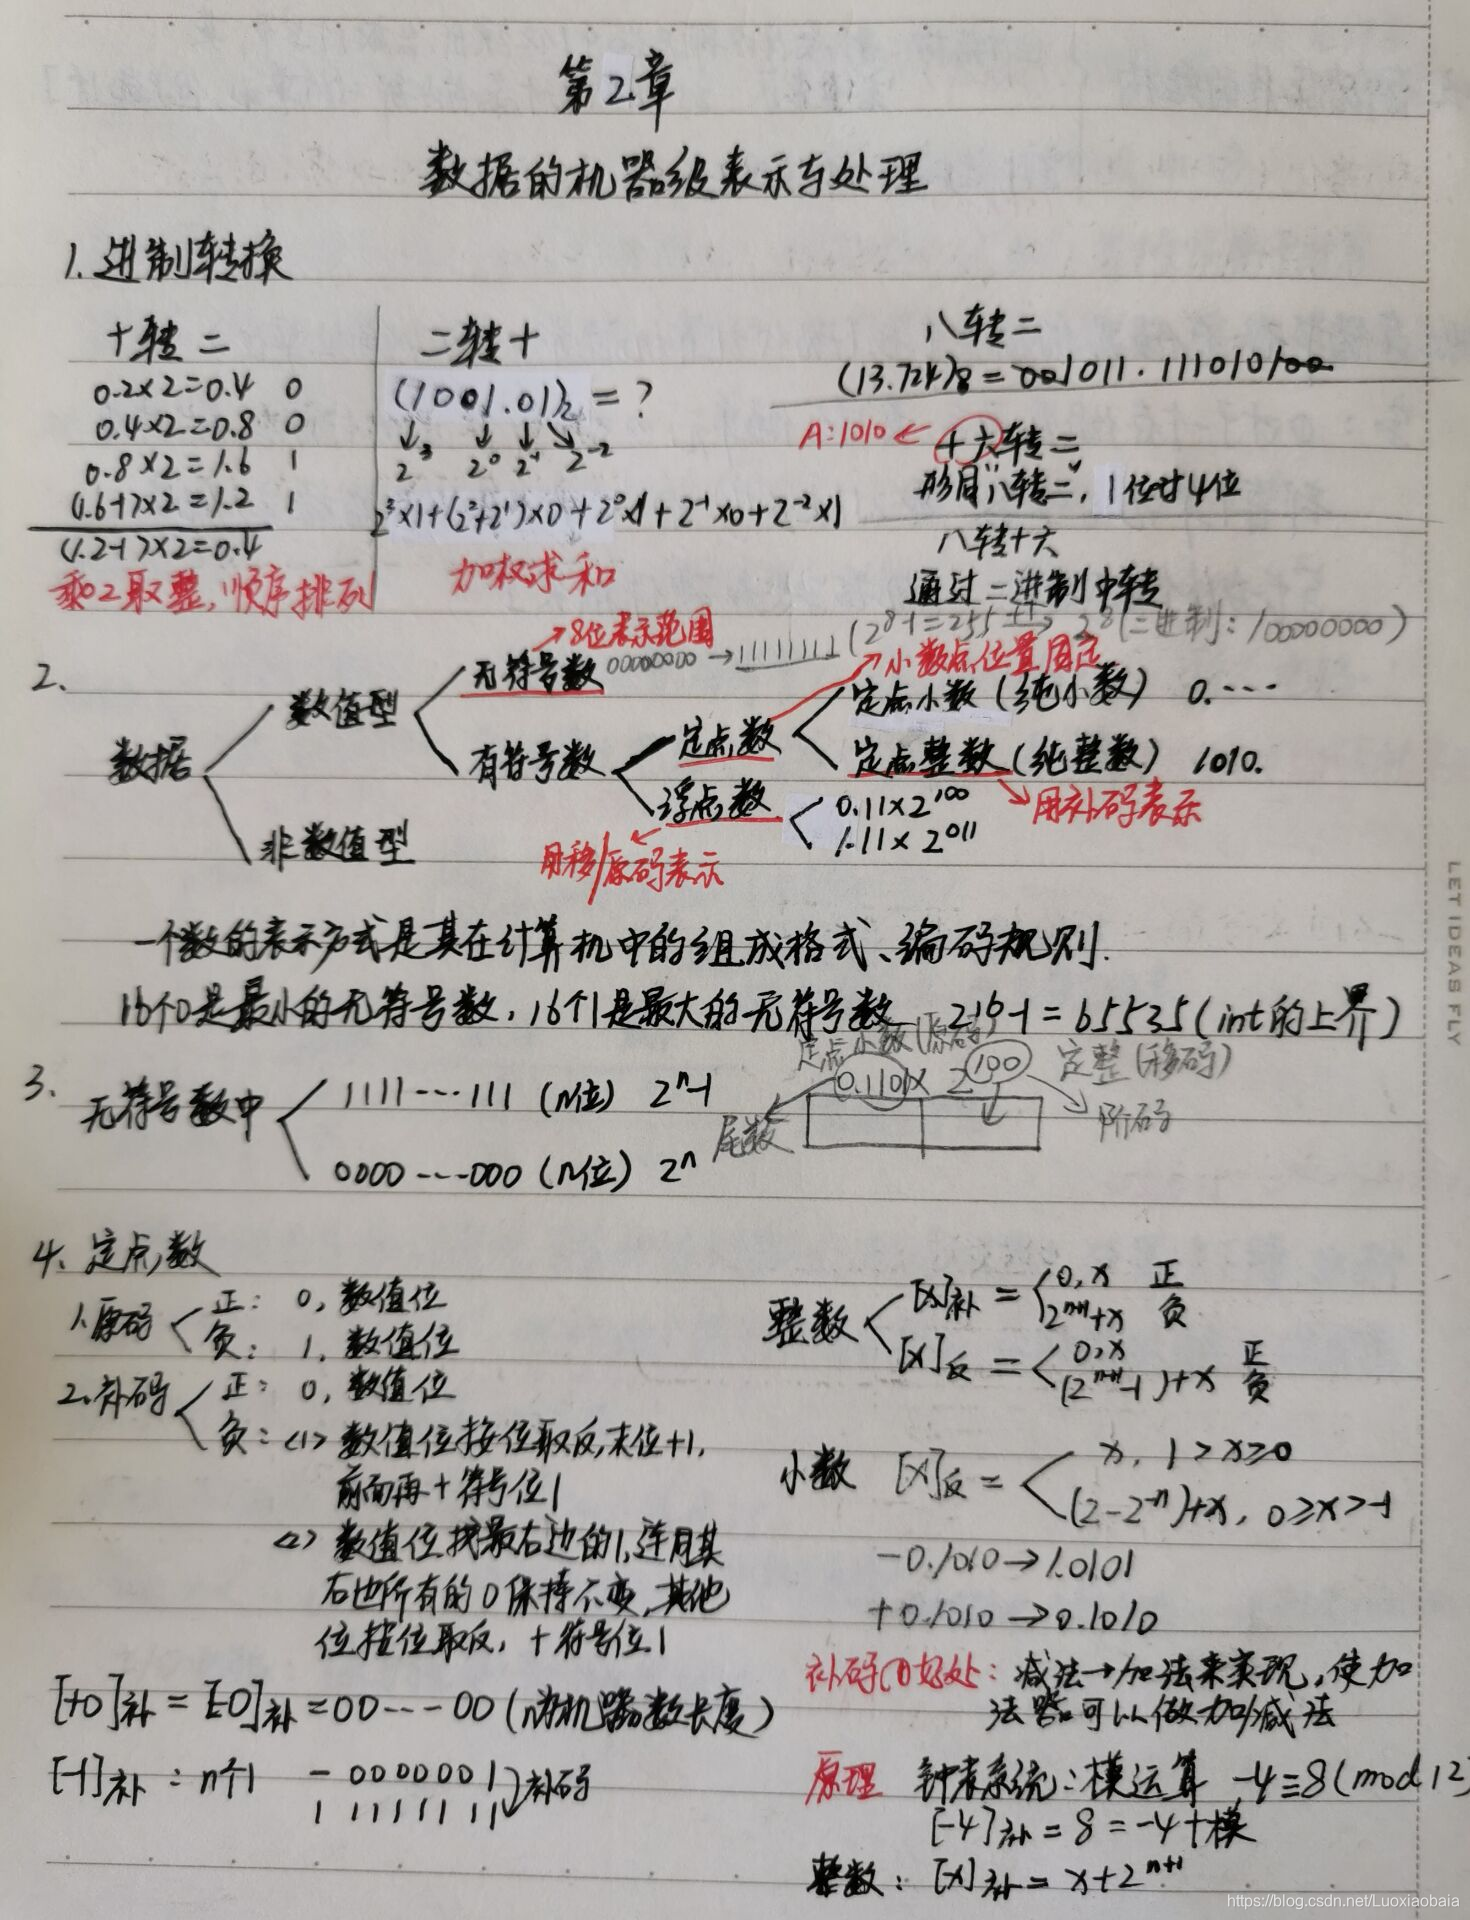 第2章
数据的机器级表示与处理
1.进制转换
十转二
0.2×2=0.4 0
0.4×2=0.8 0
0.8×2=1.6 1
(1.6-1)×2=1.2 1
(1.2-1)×2=0.4
乘2取整,顺序排列
二转十
(1001.01)₂=?
2³ 2⁰ 2⁻¹ 2⁻²
2³×1+(2²+2¹)×0+2⁰×1+2⁻¹×0+2⁻²×1
加权求和
八转二
(13.724)8=001011.111010100
A:1010← 十六转二
形同"八转二",1位对4位
八转十六
通过二进制中转
2.
数据
数值型
非数值型
无符号数
→8位表示范围
00000000→11111111(2⁸-1=255 +1→ 2⁸(二进制:100000000)
有符号数
定点数
→小数点位置固定
定点小数(纯小数) 0.···
定点整数(纯整数) 1010.
用补码表示
浮点数
0.11×2¹⁰⁰
1.11×2⁰¹¹
用移/原码表示
一个数的表示方式是其在计算机中的组成格式、编码规则.
16个0是最小的无符号数,16个1是最大的无符号数 2¹⁶-1=65535(int的上界)
3.
无符号数中
1111···111(n位) 2ⁿ-1
0000---000(n位) 2ⁿ
定点小数(原码)
0.1101×2¹⁰⁰
定整(移码)
尾数
阶码
4、定点数
1、原码
正: 0,数值位
负: 1,数值位
2、补码
正: 0,数值位
负:<1>数值位按位取反,末位+1,
前面再+符号位1
<2>数值位找最右边的1,连同其
右边所有的0保持不变,其他
位按位取反,+符号位1
[+0]补=[-0]补=00---00(n为机器数长度)
[-1]补:n个1 -0000001
11111111 补码
整数
[x]补= 0,x 正
2ⁿ⁺¹+x 负
[x]反= 0,x 正
(2ⁿ⁺¹-1)+x 负
小数 [x]反= x, 1>x≥0
(2-2⁻ⁿ)+x, 0≥x>-1
-0.1010→1.0101
+0.1010→0.1010
补码的好处:减法→加法来实现,使加
法器可以做加/减法
原理 钟表系统:模运算 -4≡8(mod 12)
[-4]补=8=-4+模
整数:[x]补=x+2ⁿ⁺¹
LET IDEAS FLY
https://blog.csdn.net/Luoxiaobaia